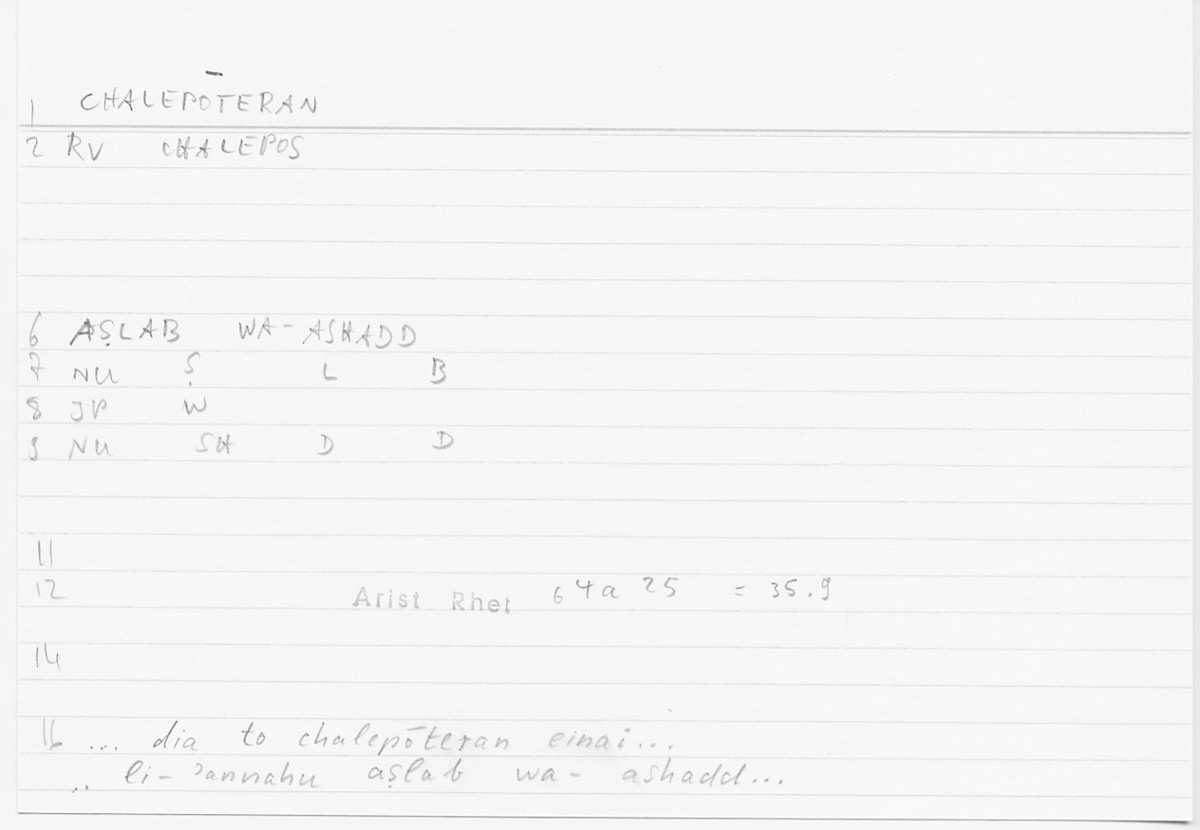 1 CHALEPŌTERAN
2 RV CHALEPOS
6 AṢLAB WA-ASHADD
7 NU Ṣ L B
8 JP W
9 NU SH D D
11
12 Arist Rhet 64a 25 = 35.9
14
16 ... dia to chalepōteran einai...
.. li-ʾannahu aṣlab wa-ashadd...